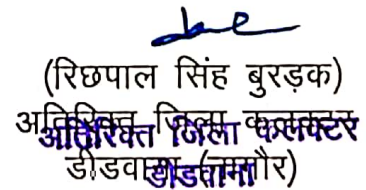 (रिछपाल सिंह बुरड़क)
अतिरिक्त जिला कलक्टर
अतिरिक्त जिला कलक्टर
डीडवाना (नागौर)
डीडवाना